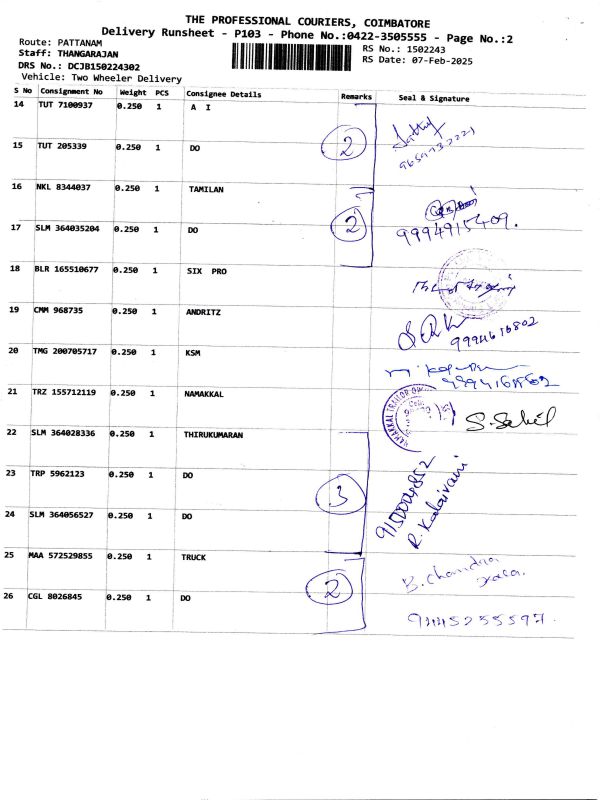 THE PROFESSIONAL COURIERS, COIMBATORE
Delivery Runsheet - P103 - Phone No.:0422-3505555 - Page No.:2
Route: PATTANAM
Staff: THANGARAJAN
DRS No.: DCJB150224302
Vehicle: Two Wheeler Delivery
RS No.: 1502243
RS Date: 07-Feb-2025
S No Consignment No Weight PCS Consignee Details Remarks Seal & Signature
14 TUT 7100937 0.250 1 A I
15 TUT 205339 0.250 1 DO 2
16 NKL 8344037 0.250 1 TAMILAN
17 SLM 364035204 0.250 1 DO 2 9994915409.
18 BLR 165510677 0.250 1 SIX PRO
19 CMM 968735 0.250 1 ANDRITZ 9994616802
20 TMG 200705717 0.250 1 KSM
21 TRZ 155712119 0.250 1 NAMAKKAL S. Sahil
22 SLM 364028336 0.250 1 THIRUKUMARAN
23 TRP 5962123 0.250 1 DO 3 9150004852
R. Kalaivani
24 SLM 364056527 0.250 1 DO
25 MAA 572529855 0.250 1 TRUCK B. Chandra
26 CGL 8026845 0.250 1 DO 2